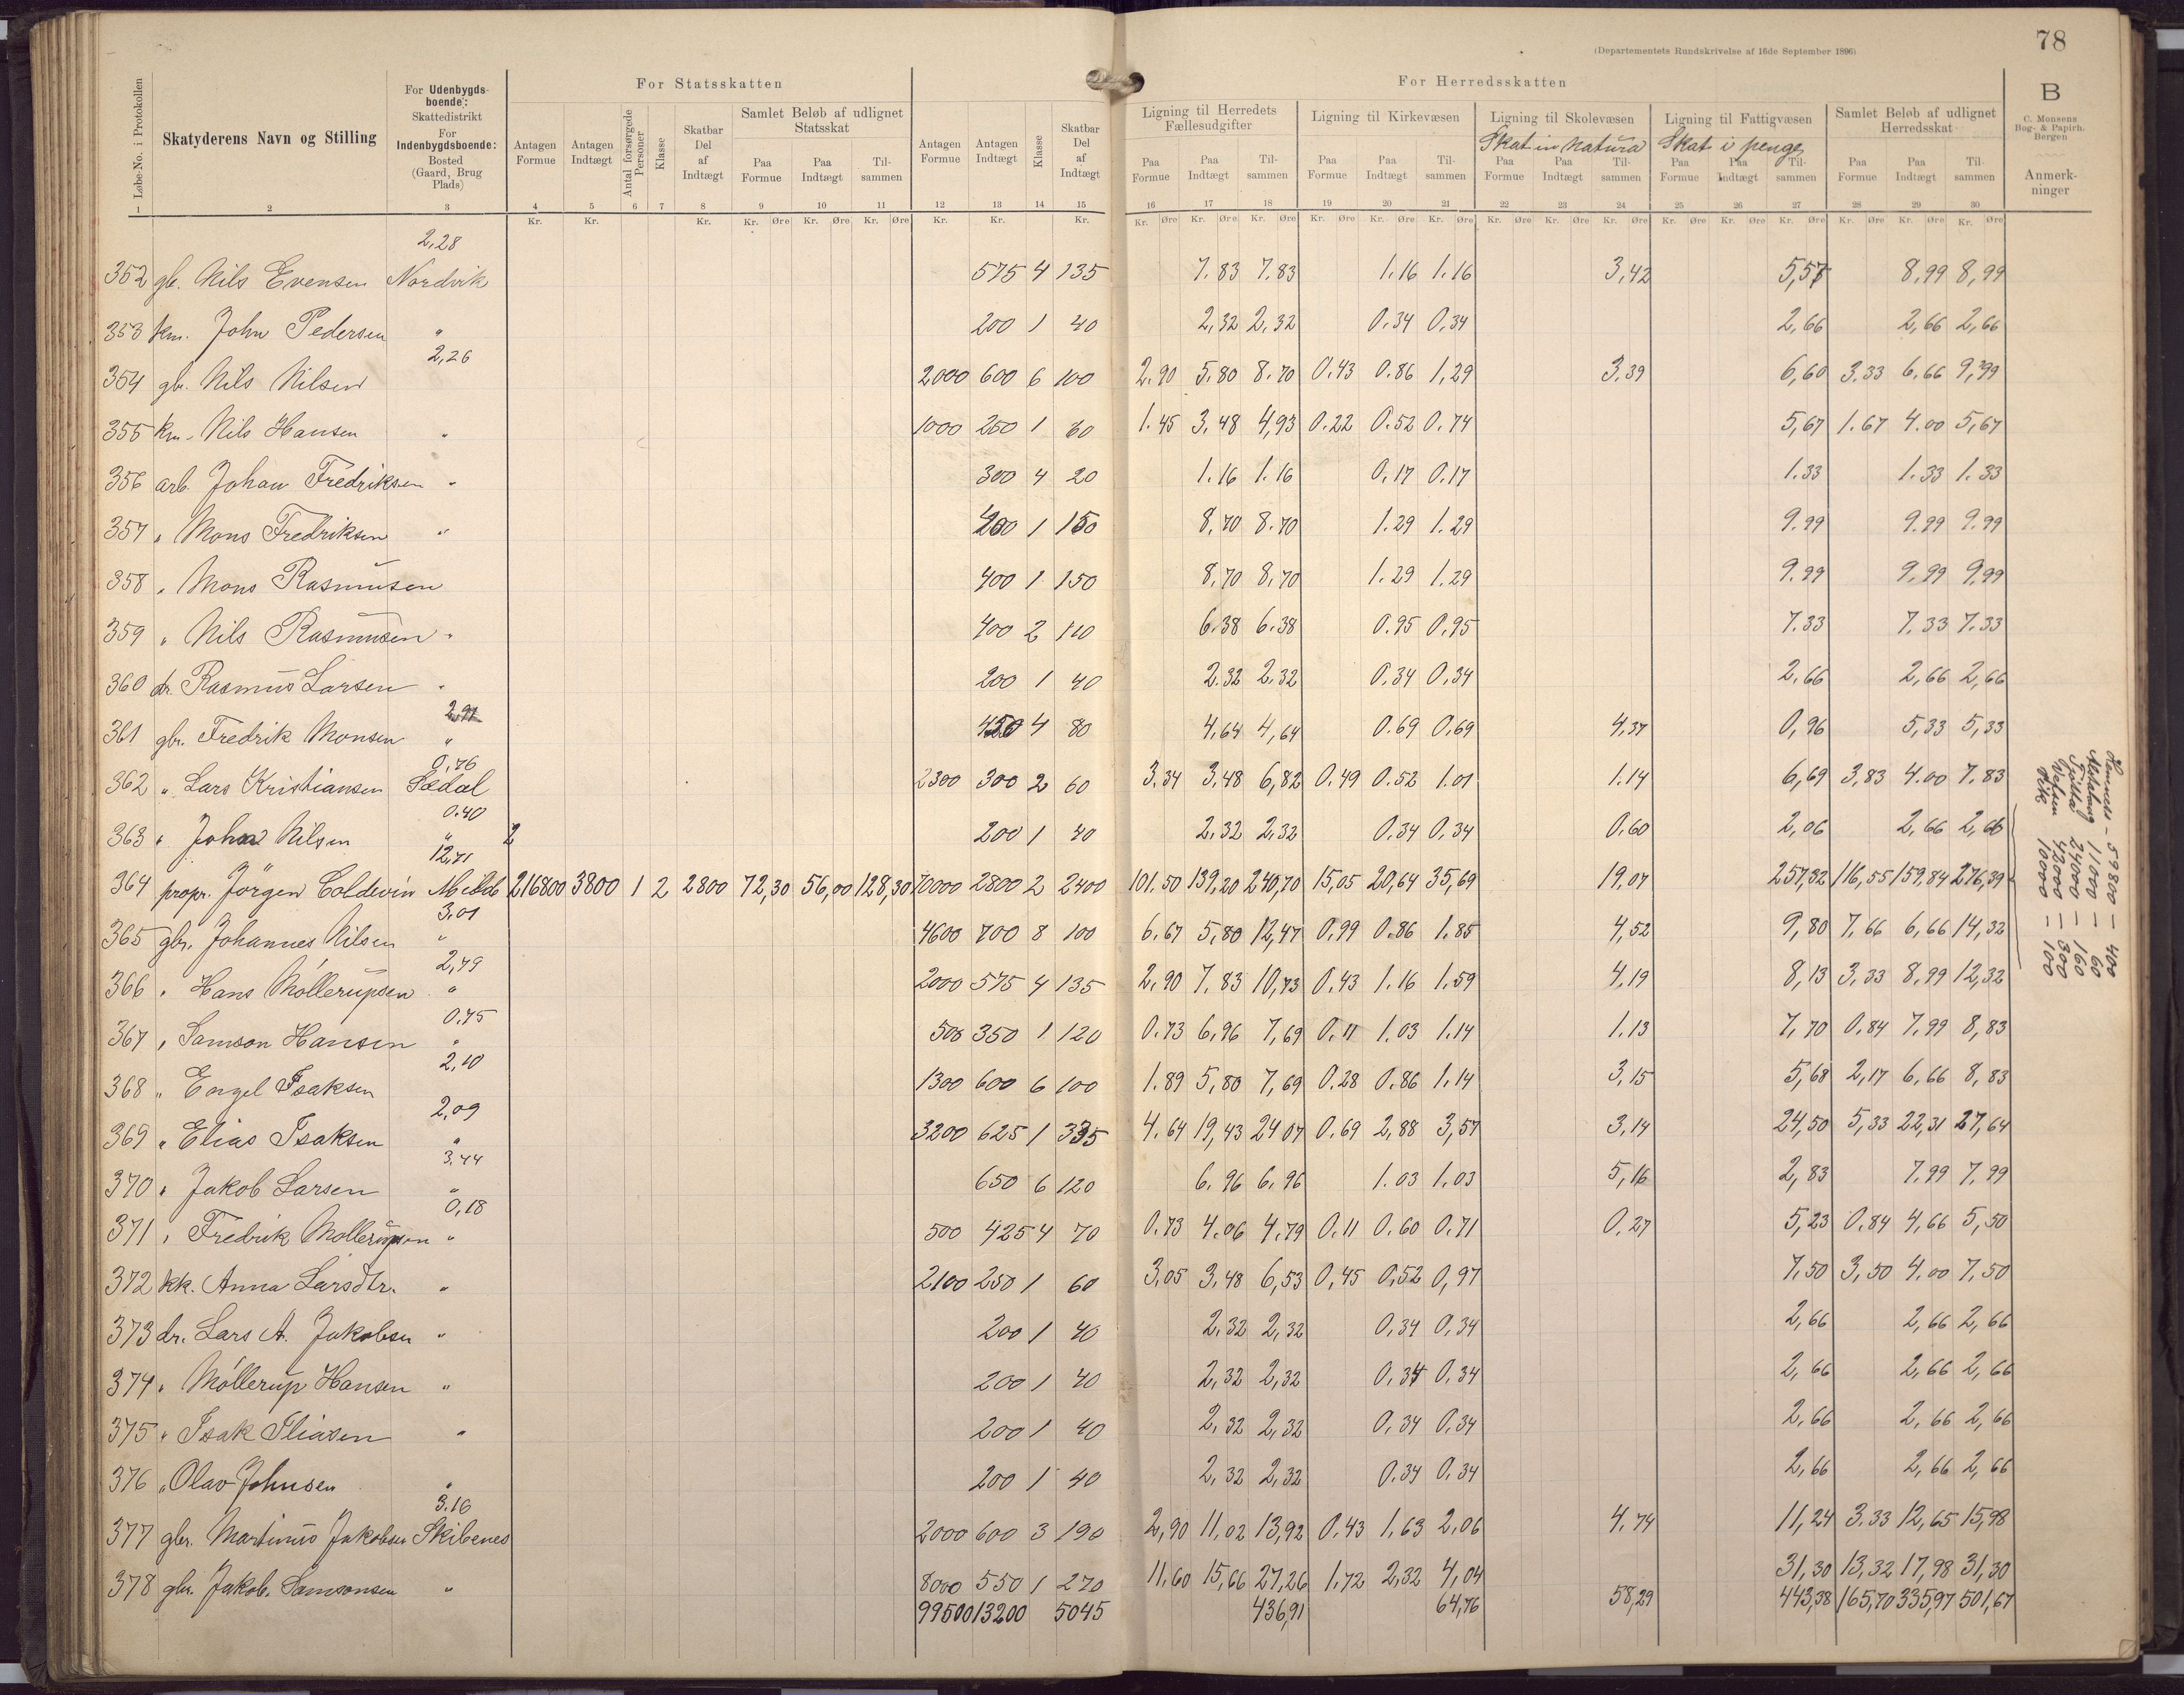 (Departementets Rundskrivelse af 16de September 1896)
78
B
C. Monsens Bog- & Papirh. Bergen
Løbe-No. i Protokollen
Skatyderens Navn og Stilling
For Udenbygds-boende: Skattedistrikt
For Indenbygdsboende: Bosted (Gaard, Brug Plads)
For Statsskatten
Antagen Formue
Antagen Indtægt
Antal forsørgede Personer
Klasse
Skatbar Del af Indtægt
Samlet Beløb af udlignet Statsskat
Paa Formue
Paa Indtægt
Til-sammen
Antagen Formue
Antagen Indtægt
Klasse
Skatbar Del af Indtægt
For Herredsskatten
Ligning til Herredets Fællesudgifter
Paa Formue Paa Indtægt Til-sammen
Ligning til Kirkevæsen
Paa Formue Paa Indtægt Til-sammen
Ligning til Skolevæsen
Skat in natura
Paa Formue Paa Indtægt Til-sammen
Ligning til Fattigvæsen
Skat i penge
Paa Formue Paa Indtægt Til-sammen
Samlet Beløb af udlignet Herredsskat
Paa Formue Paa Indtægt Til-sammen
Anmerk-ninger
1 2 3 4 5 6 7 8 9 10 11 12 13 14 15 16 17 18 19 20 21 22 23 24 25 26 27 28 29 30
Kr. Kr. Kr. Kr. Øre Kr. Øre Kr. Øre Kr. Kr. Kr. Kr. Øre Kr. Øre Kr. Øre Kr. Øre Kr. Øre Kr. Øre Kr. Øre Kr. Øre Kr. Øre Kr. Øre Kr. Øre Kr. Øre Kr. Øre Kr. Øre Kr. Øre
2,28
352 gb. Nils Evensen Nordvik 575 4 135 7.83 7.83 1.16 1.16 3,42 5,57 8,99 8,99
353 km. John Pedersen " 200 1 40 2,32 2,32 0.34 0,34 2,66 2,66 2,66
2,26
354 gb. Nils Nilsen 2000 600 6 100 2.90 5.80 8.70 0.43 0.86 1,29 3,39 6,60 3.33 6.66 9,99
355 km. Nils Hansen " 1000 250 1 60 1.45 3,48 4,93 0.22 0.52 0.74 5,67 1.67 4.00 5,67
356 arb. Johan Fredriksen " 300 4 20 1.16 1.16 0.17 0.17 1.33 1.33 1.33
357 " Mons Fredriksen " 400 1 150 8,70 8.70 1.29 1.29 9.99 9.99 9.99
358 " Mons Rasmusen 400 1 150 8,70 8,70 1.29 1.29 9.99 9,99 9,99
359 " Nils Rasmusen " 400 2 110 6.38 6.38 0.95 0,95 7.33 7.33 7.33
360 dr. Rasmus Larsen " 200 1 40 2.32 2,32 0.34 0,34 2,66 2,66 2,66
2,91
361 gbr. Fredrik Monsen " 450 4 80 4,64 4,64 0.69 0,69 4,37 0,96 5,33 5,33
0,76
362 " Lars Kristiansen Sædal 2300 300 2 60 3.34 3,48 6,82 0.49 0.52 1.01 1.14 6,69 3,83 4.00 7.83
0.40
363 " John Nilsen " 2 200 1 40 2,32 2,32 0.34 0,34 0,60 2,06 2,66 2,66
12,71
364 propr. Jörgen Coldevin 216800 3800 1 2 2800 72,30 56,00 128,30 70000 2800 2 2400 101.50 139,20 240,70 15,05 20,64 35,69 19,07 257,32 116,55 159,84 276,39
3,01
365 gbr. Johannes Nilsen " 4600 700 8 100 6.67 5,80 12,47 0,99 0.86 1.85 4,52 9,80 7,66 6,66 14,32
2,79
366 " Hans Möllerupsen " 2000 575 4 135 2,90 7.83 10,73 0,43 1.16 1.59 4,19 8,13 3,33 8,99 12,32
0.75
367 " Samson Hansen " 500 350 1 120 0.73 6,96 7,69 0,11 1.03 1.14 1.13 7,70 0,84 7,99 8,83
2,10
368 " Engel Isaksen 1300 600 6 100 1.89 5,80 7,69 0.28 0,86 1.14 3,15 5,68 2,17 6,66 8,83
2,09
369 " Elias Isaksen " 3200 625 1 335 4.64 19,43 24 07 0,69 2,88 3,57 3,14 24,50 5,33 22,31 27,64
3,44
370 " Jakob Larsen " 650 6 120 6.96 6.96 1.03 1,03 5,16 2,83 7.99 7,99
0,18
371 " Fredrik Mollerupsen " 500 425 4 70 0.73 4.06 4.79 0.11 0.60 0.71 0,27 5,23 0.84 4,66 5,50
372 kk. Anna Larsdtr. " 2100 250 1 60 3,05 3,48 6,53 0,45 0,52 0,97 7.50 3,50 4.00 7.50
373 dr. Lars A. Jakobsen " 200 1 40 2,32 2,32 0,34 0,34 2,66 2,66 2,66
374 " Möllerup Hansen " 200 1 40 2,32 2,32 0.34 0.34 2,66 2,66 2,66
375 " Isak Eliasen " 200 1 40 2,32 2,32 0,34 0,34 2,66 2,66 2,66
376 " Olav Johnsen " 200 1 40 2,32 2,32 0.34 0,34 2,66 2,66 2,66
3.16
377 gbr. Martinus Jakobsen Skibenes 2000 600 3 190 2,90 11,02 13,92 0.43 1.63 2,06 4,74 11,24 3.33 12,65 15,98
378 gbr. Jakob Samsonsen " 8000 550 1 270 11.60 15,66 27,26 1,72 2,32 4,04 31,30 13,32 17,98 31,30
99500 13200 5045 436,91 64,76 58,29 443,38 165,70 335,97 501,67
Hemnes - 59800 - 400
11000 - 60
24000 - 160
Vefsen 42000 - 300
10000 - 100